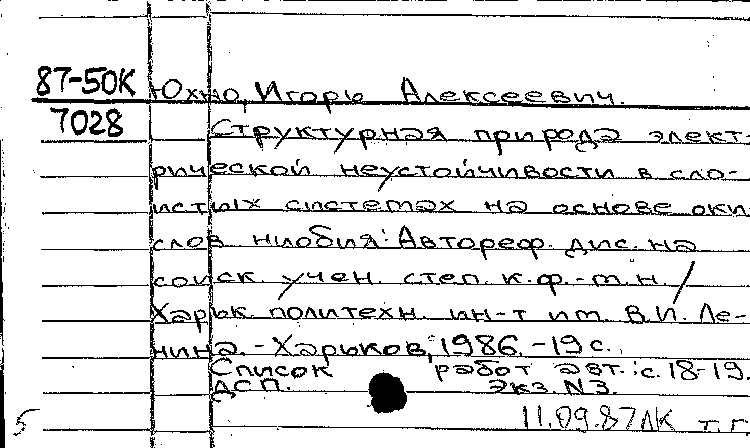 87-50К Юхно, Игорь Алексеевич.
7028 Структурная природа элект-
рической неустойчивости в сло-
истых системах на основе оки
слов ниобия: Автореф. дис. на
соиск. учен. степ. к.ф.-м.н. /
Харьк политехн. ин-т им. В.И. Ле-
нина. - Харьков, 1986. - 19 с.
Список работ авт.: с. 18-19.
ДСП. Экз. N3.
11.09.87ЛК т.г.
5